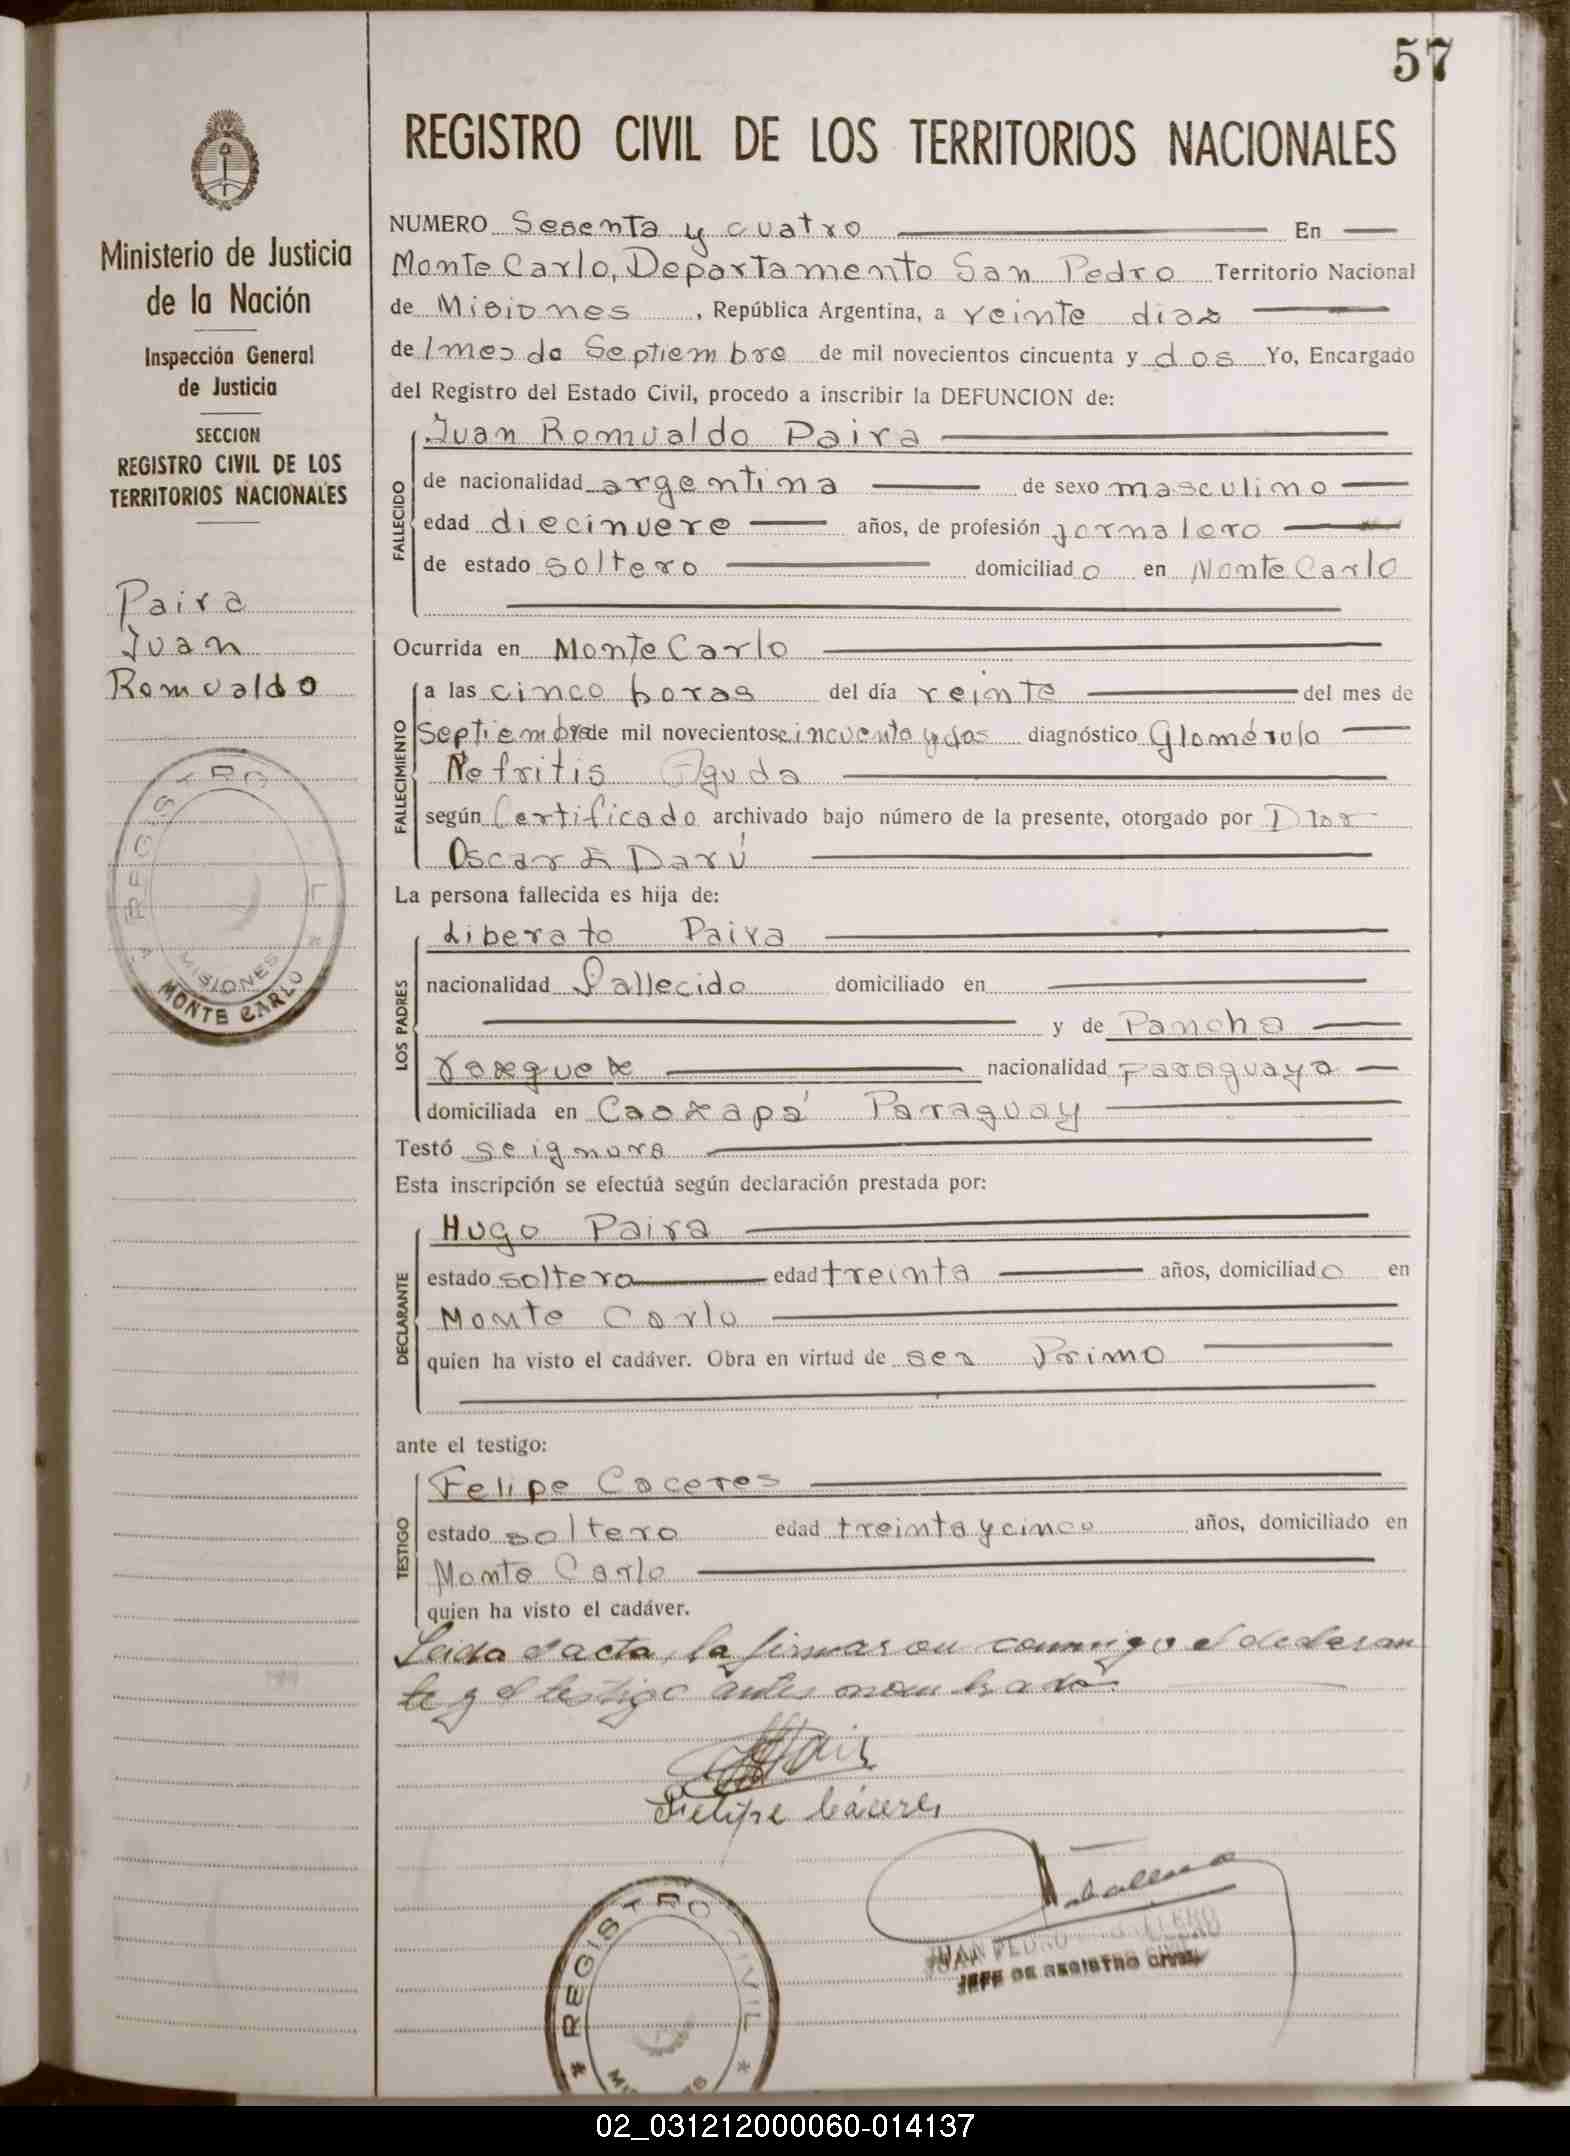 57
REGISTRO CIVIL DE LOS TERRITORIOS NACIONALES
Ministerio de Justicia
de la Nación
Inspección General
de Justicia
SECCION
REGISTRO CIVIL DE LOS
TERRITORIOS NACIONALES
Paira
Juan
Romualdo
REGISTRO CIVIL
MISIONES
MONTE CARLO
NUMERO Sesenta y cuatro En
Monte Carlo, Departamento San Pedro Territorio Nacional
de Misiones, República Argentina, a veinte dias
del mes de Septiembre de mil novecientos cincuenta y dos Yo, Encargado
del Registro del Estado Civil, procedo a inscribir la DEFUNCION de:
FALLECIDO
Juan Romualdo Paira
de nacionalidad argentina de sexo masculino
edad diecinueve años, de profesión jornalero
de estado soltero domiciliado en Monte Carlo
Ocurrida en Monte Carlo
FALLECIMIENTO
a las cinco horas del día veinte del mes de
Septiembre de mil novecientos cincuenta y dos diagnóstico Glomérulo
Nefritis Aguda
según Certificado archivado bajo número de la presente, otorgado por
Oscar Darú
La persona fallecida es hija de:
LOS PADRES
Liberato Paiva
nacionalidad Fallecido domiciliado en
y de Pancha
nacionalidad Paraguaya
domiciliada en Caazapá Paraguay
Testó se ignora
Esta inscripción se efectúa según declaración prestada por:
DECLARANTE
Hugo Paira
estado soltero edad treinta años, domiciliado en
Monte Carlo
quien ha visto el cadáver. Obra en virtud de ser Primo
ante el testigo:
TESTIGO
Felipe Caceres
estado soltero edad treinta y cinco años, domiciliado en
Monte Carlo
quien ha visto el cadáver.
Leida el acta, la firmaron conmigo el declaran
te y el testigo antes nombrado.
Felipe Cáceres
JUAN PEDRO
JEFE DE REGISTRO CIVIL
REGISTRO CIVIL
02_031212000060-014137